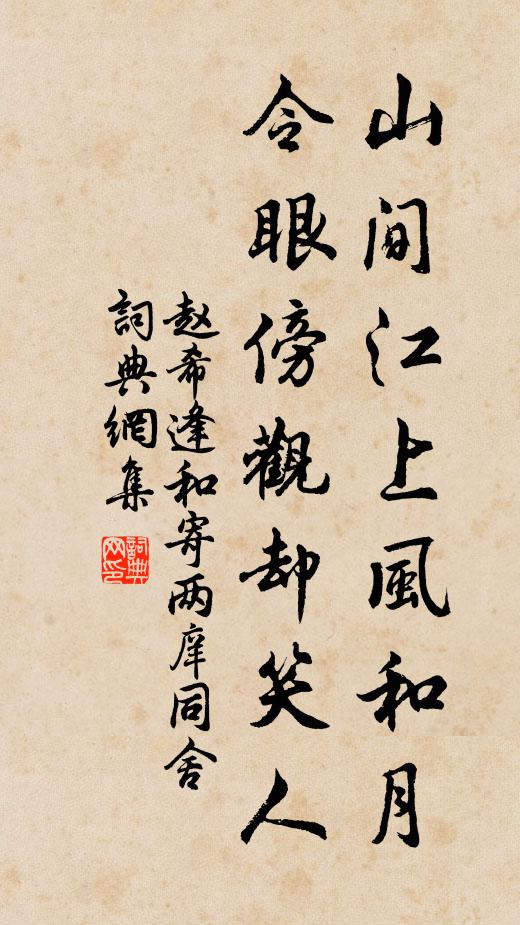 山間江上風和月
令眼傍觀却笑人
赵希逢和寄两庠同舍
詞典網集
詞典網印